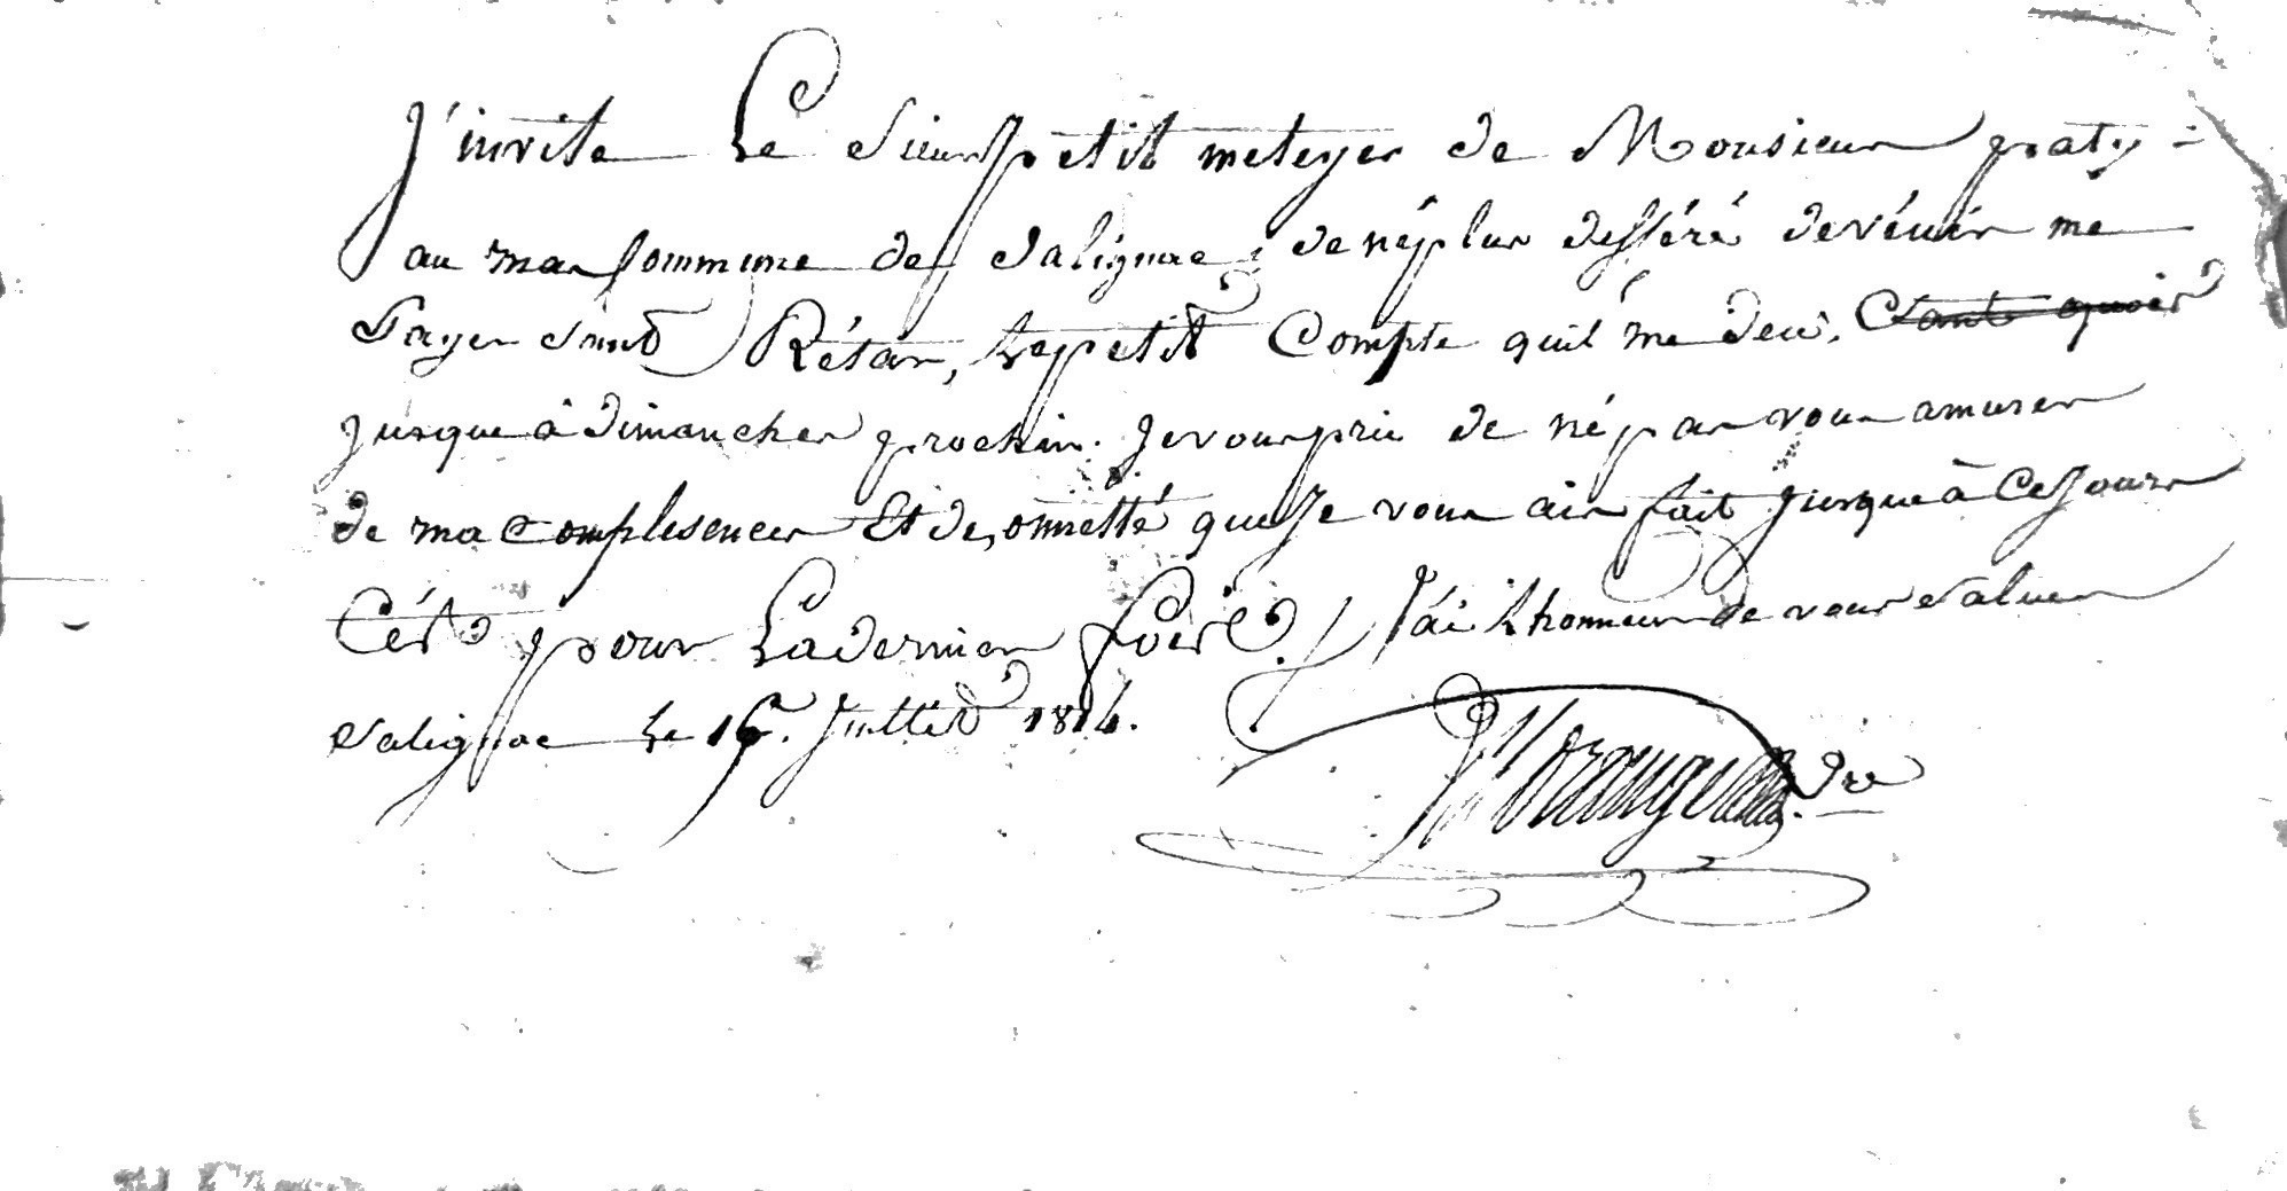 J'invite Le Sieur petit meteyer de Monsieur praty =
au mas Commune de Salignac, de né plus défféré de vénir me
Payer Sans Rétar, Le petit Compte quil me deu. Cante quoi
jusque à dimancher prochin. Je vous prie de né pas vous amuser
de ma complesencer Et de, onnetté que Je vous ais fait jusque à Ce Jours
Cést pour La dernier foir. J'ai Lhonneur de vous Saluer
Salignac Le 15. Juillet 1814.